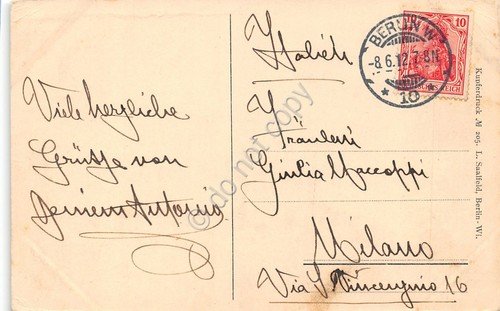 Viele herzliche
Grüsse von
Deinem Antonio
Italien
Fräulein
Giulia Maccoppi
Milano
Via S. Vincenzino 16
BERLIN W
-8.6.12.7-8N.
* 10 *
10
Kupferdruck № 205. L. Saalfeld, Berlin-Wi.
do not copy